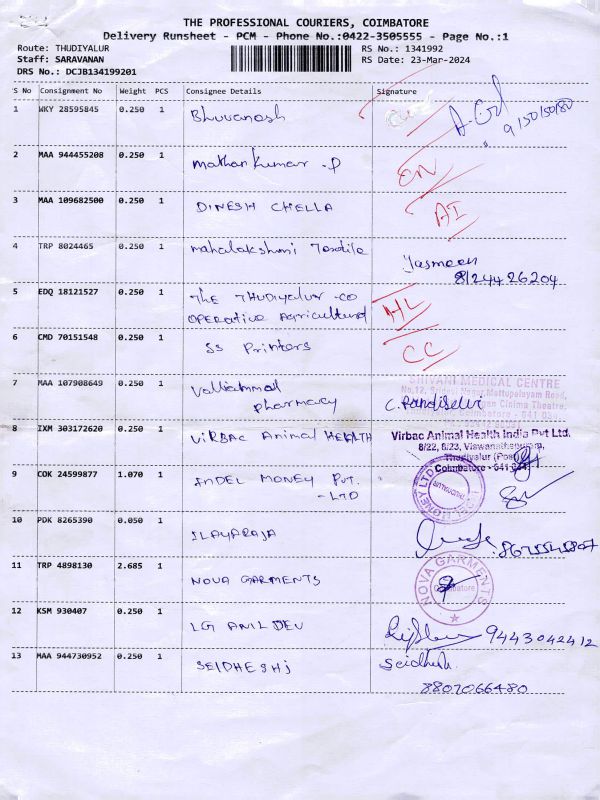 THE PROFESSIONAL COURIERS, COIMBATORE
Delivery Runsheet - PCM - Phone No.:0422-3505555 - Page No.:1
Route: THUDIYALUR RS No.: 1341992
Staff: SARAVANAN RS Date: 23-Mar-2024
DRS No.: DCJB134199201
S No Consignment No Weight PCS Consignee Details Signature
1 WKY 28595845 0.250 1 Bhuvanesh
2 MAA 944455208 0.250 1 Mathan Kumar .P EN
3 MAA 109682500 0.250 1 DINESH CHELLA AI
4 TRP 8024465 0.250 1 mahalakshmi Textile Yasmeen
8124426204
5 EDQ 18121527 0.250 1 THE THUDIYALUR CO
OPERATIVE Agricultural HL
6 CMD 70151548 0.250 1 SS Printers CC
7 MAA 107908649 0.250 1 Valliammal
pharmacy C. Pandiselvi
SHIVANI MEDICAL CENTRE
8 IXM 303172620 0.250 1 VIRBAC Animal HEALTH Virbac Animal Health India Pvt Ltd.
8/22, 8/23, Viswanathapuram,
Thudiyalur (Post)
Coimbatore - 641 034
9 COK 24599877 1.070 1 INDEL MONEY PVT.
- LTD
10 PDK 8265390 0.050 1 ILAYARAJA
11 TRP 4898130 2.685 1 NOVA GARMENTS NOVA GARMENTS
Coimbatore
12 KSM 930407 0.250 1 LG ANIL DEV 9443042412
13 MAA 944730952 0.250 1 SEIDHESHJ
8807066480